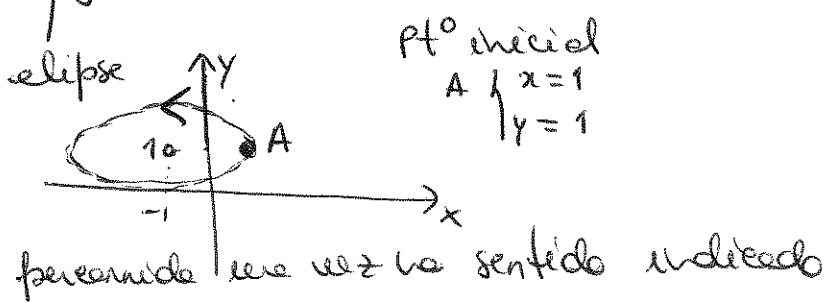 elipse
Pt° inicial
A { x = 1
y = 1
y
1
A
-1
x
percorrida uma vez no sentido indicado